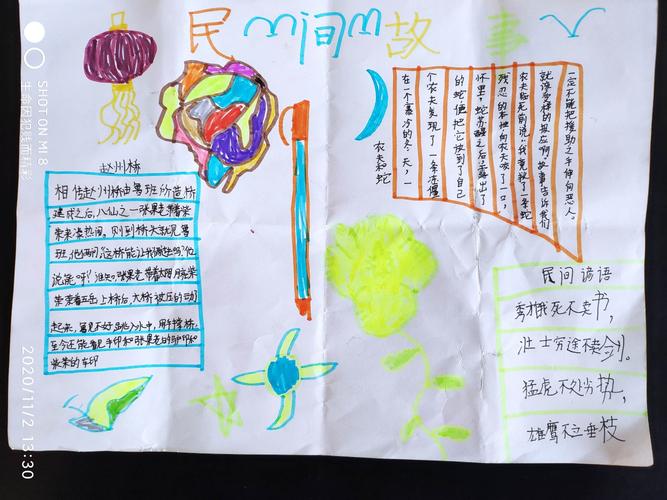 民间故事
赵州桥
相传赵州桥由鲁班所造,桥
建成之后,八仙之一张果老带着柴
荣来凑热闹。刚到桥头就见鲁
班,他俩问:"这桥能让我俩过吗?"他
说能"哼!谁知,张果老带着太阳月亮柴
荣带着五岳上桥后,大桥被压的动
起来,鲁见不好跳入水中,用手撑桥,
至今还能看见手印和张果老的驴蹄印和
柴荣的车印
农夫和蛇
在一个寒冷的冬天,一
个农夫发现了一条冻僵
的蛇便把它放到了自己
怀里,蛇苏醒之后露出了
残忍的本性向农夫咬了一口,
农夫临死前说:我竟救了一条蛇
就该受这样的报应啊!故事告诉我们
一定不能把援助之手伸向恶人。
民间谚语
秀才饿死不卖书,
壮士穷途不卖剑。
猛虎不处劣势,
雄鹰不立垂枝
SHOT ON MI 8
生命因犯贱而精彩
2020/11/2 13:30